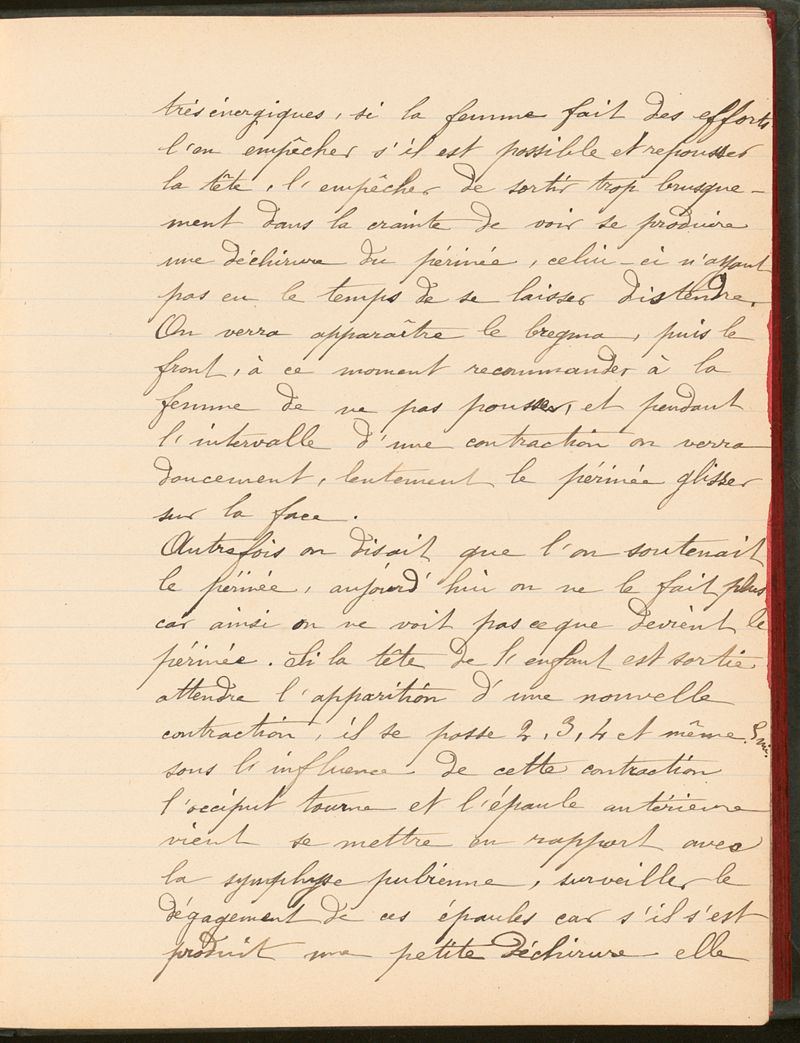 très énergiques, si la femme fait des efforts
l'en empêcher s'il est possible et repousser
la tête, l'empêcher de sortir trop brusque-
ment dans la crainte de voir se produire
une déchirure du périnée, celui-ci n'ayant
pas eu le temps de se laisser distendre.
On verra apparaître le bregma, puis le
front, à ce moment recommander à la
femme de ne pas pousser, et pendant
l'intervalle d'une contraction on verra
doucement, lentement le périnée glisser
sur la face.
Autrefois on disait que l'on soutenait
le périnée, aujourd'hui on ne le fait plus
car ainsi on ne voit pas ce que devient le
périnée. Si la tête de l'enfant est sortie
attendre l'apparition d'une nouvelle
contraction, il se passe 2, 3, 4 et même 5 mi.
sous l'influence de cette contraction
l'occiput tourne et l'épaule antérieure
vient se mettre en rapport avec
la symphyse pubienne, surveiller le
dégagement de ces épaules car s'il s'est
produit une petite déchirure elle